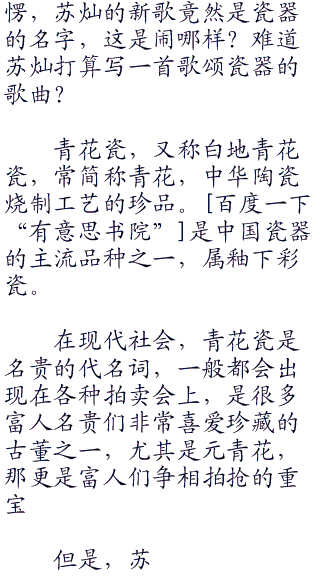 愣，苏灿的新歌竟然是瓷器
的名字，这是闹哪样？难道
苏灿打算写一首歌颂瓷器的
歌曲？
青花瓷，又称白地青花
瓷，常简称青花，中华陶瓷
烧制工艺的珍品。[百度一下
“有意思书院”]是中国瓷器
的主流品种之一，属釉下彩
瓷。
在现代社会，青花瓷是
名贵的代名词，一般都会出
现在各种拍卖会上，是很多
富人名贵们非常喜爱珍藏的
古董之一，尤其是元青花，
那更是富人们争相拍抢的重
宝
但是，苏